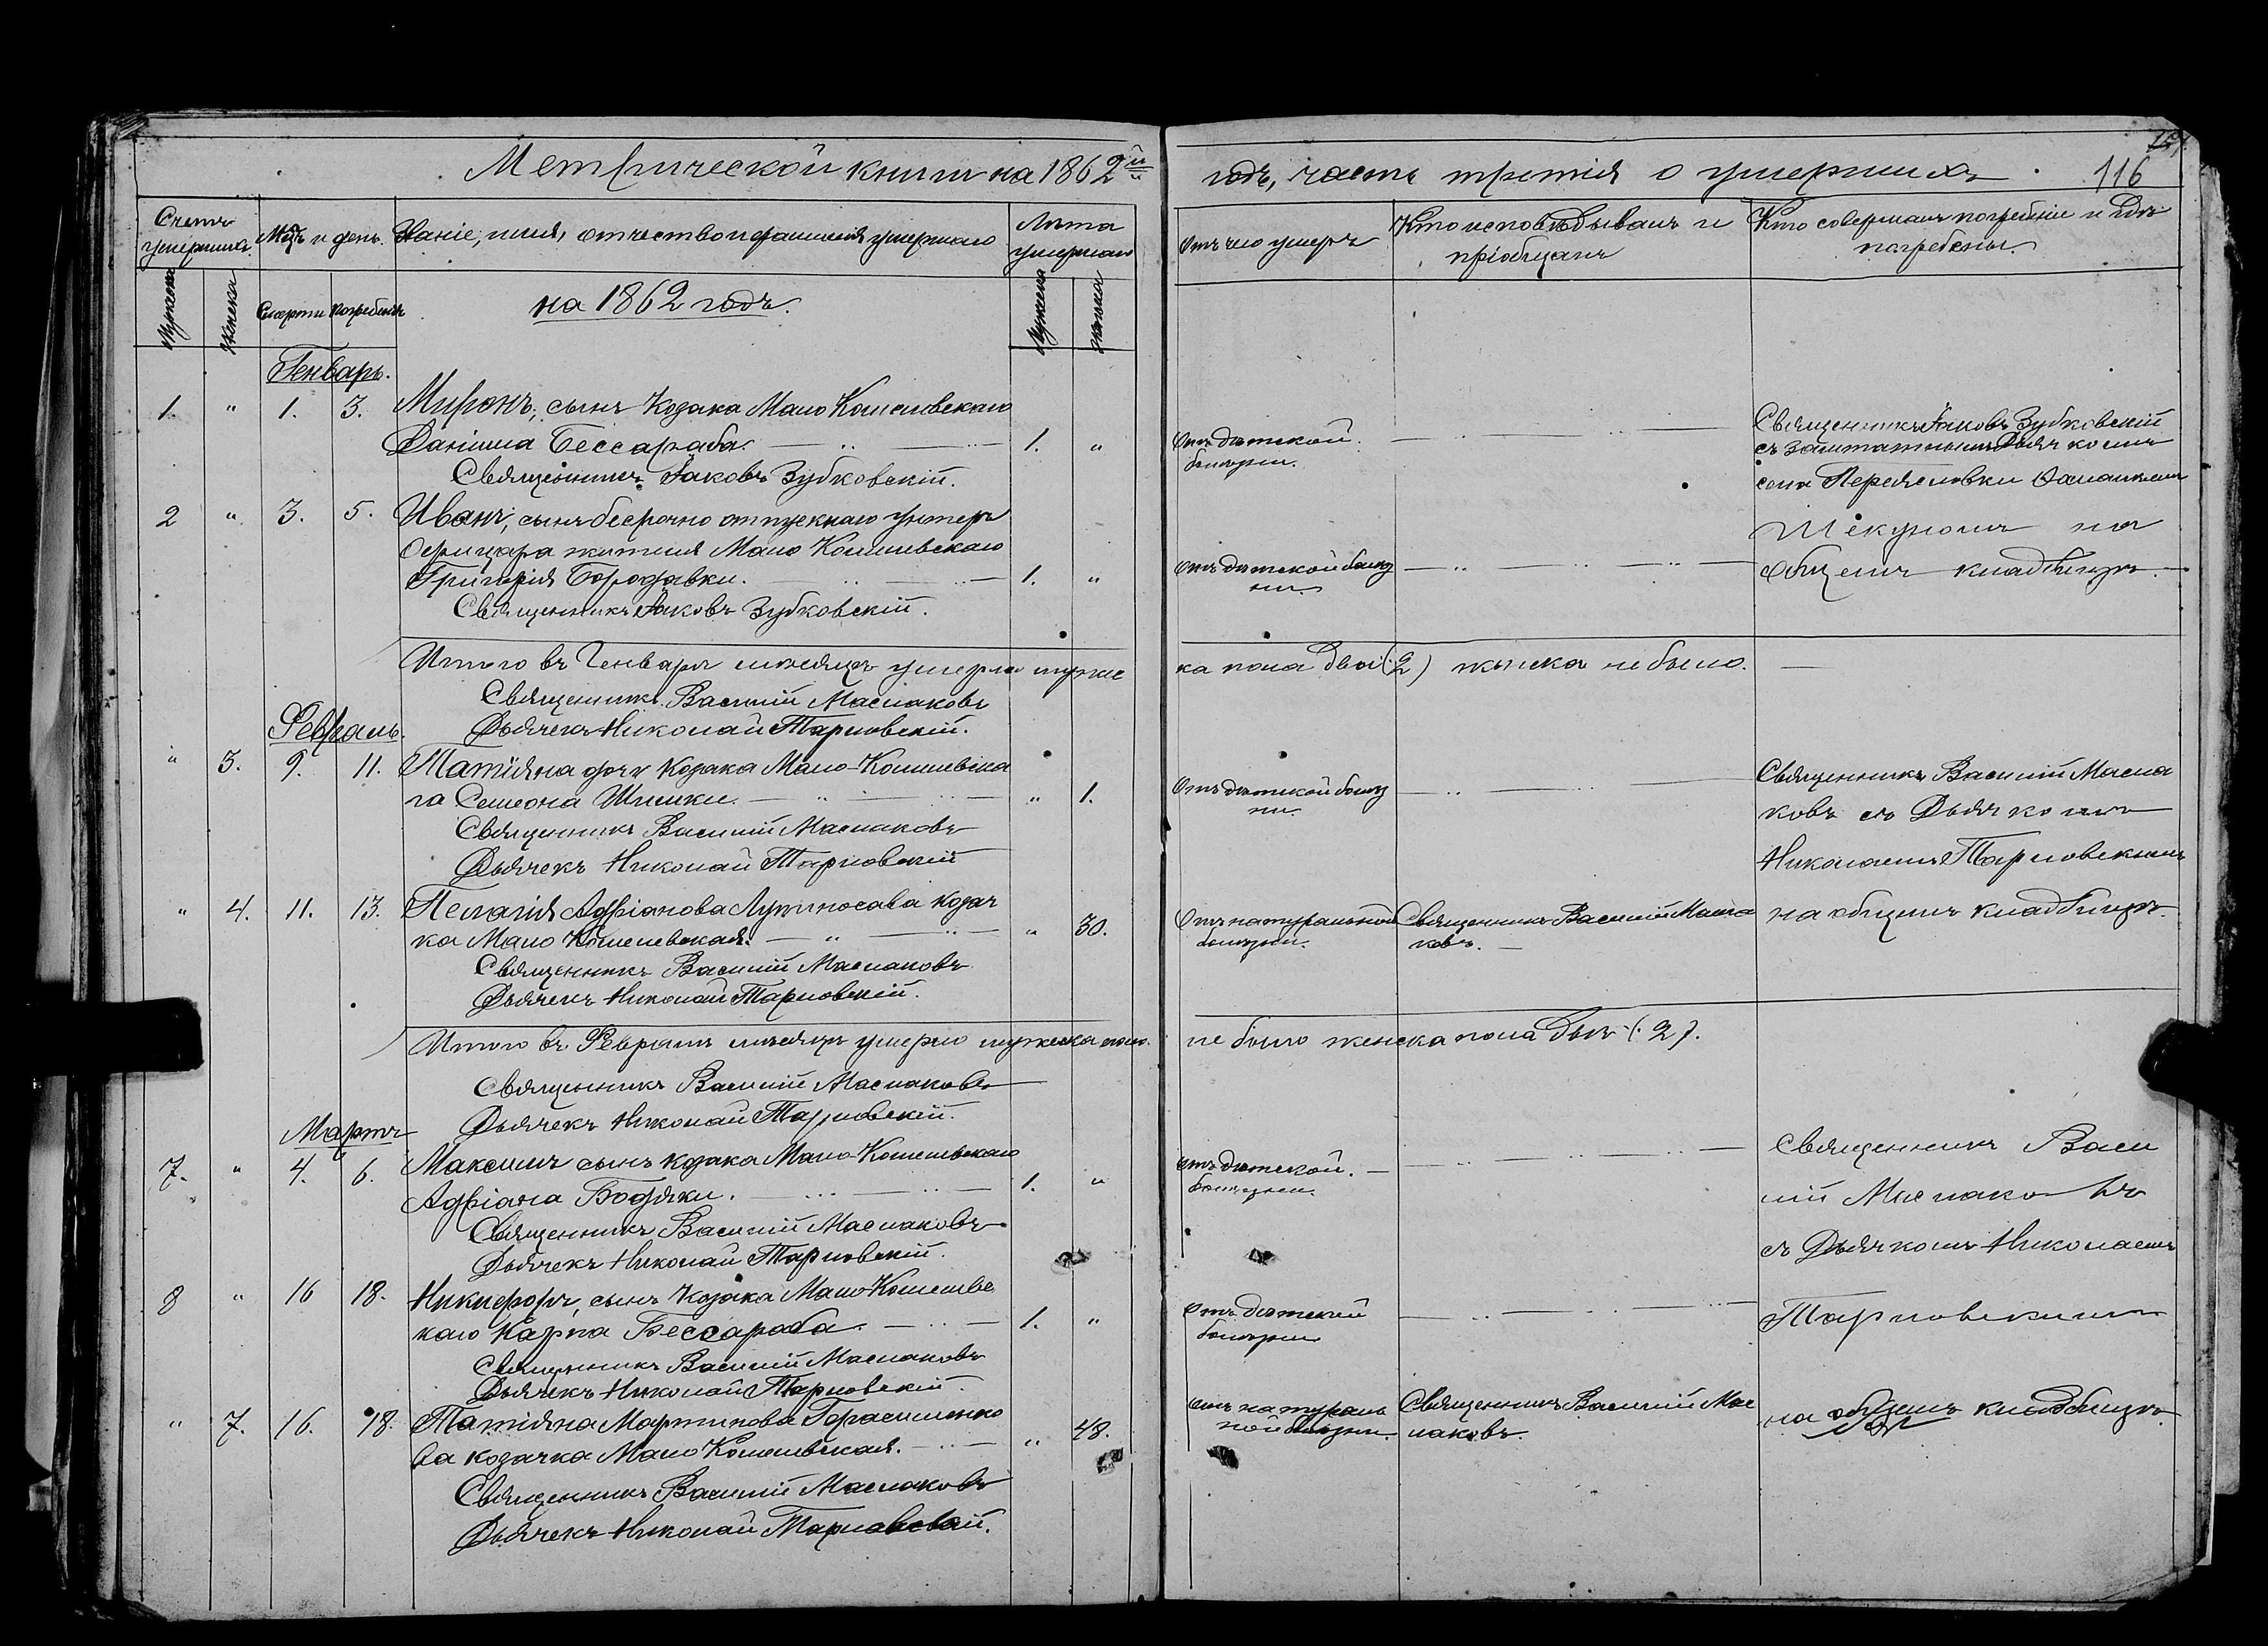 Метрической книги на 1862й
Счетъ умершихъ. Мцъ и день. Званіе, имя, отчество и фамилія умершаго Лѣта умершаго
Мужеска Женска Смерти Погребенія
на 1862 годъ.
Мужеска Женска
Генварь.
1. " 1. 3. Миронъ, сынъ Козака Мало Кошелевскаго
Даніила Бессараба. 1. "
Священникъ Іаковъ Зубковскій.
2 " 3. 5. Иванъ, сынъ безсрочно отпускнаго унтеръ
Офицера жителя Мало Кошелевскаго
Григорія Бородавки. 1. "
Священникъ Іаковъ Зубковскій.
Итого въ Генварѣ мѣсяцѣ умерло мужес
Священникъ Василій Маслаковъ
Февраль. Дьячекъ Николай Тарновскій.
" 3. 9. 11. Татіяна дочь Козака Мало-Кошелевска
го Семеона Шишки. " 1.
Священникъ Василій Маслаковъ
Дьячекъ Николай Тарновскій
" 4. 11. 13. Пелагія Адріанова Лупиносава козач
ка Мало Кошелевская. " 30.
Священникъ Василій Маслаковъ
Дьячекъ Николай Тарновскій.
Итого въ Февралѣ мѣсяцѣ умерло мужеска пола
Священникъ Василій Маслаковъ
Мартъ Дьячекъ Николай Тарновскій.
7. " 4. 6. Максимъ сынъ козака Мало-Кошелевскаго
Адріана Бодяки. 1. "
Священникъ Василій Маслаковъ
Дьячекъ Николай Тарновскій.
8 " 16 18. Никифоръ, сынъ Козака Мало Кошелевс
каго Карпа Бессараба. 1. "
Священникъ Василій Маслаковъ
Дьячекъ Николай Тарновскій.
" 7. 16. 18. Татіяна Мартинова Гарасименко
ва козачка Мало Кошелевская. " 48.
Священникъ Василій Маслаковъ
Дьячекъ Николай Тарновскій.
годъ, часть третія о умершихъ. 116
Отъ чего умеръ Кто исповѣдывалъ и пріобщалъ Кто совершалъ погребеніе и гдѣ погребены.
Отъ дѣтской
болѣзни.
Священникъ Іаковъ Зубковскій
съ заштатнымъ Дьячкомъ
села Переясловки
на
Отъ дѣтской болѣз
ни.
общемъ кладбищѣ.
ка пола два (2) женска не было.
Отъ дѣтской болѣз
ни.
Священникъ Василій Масла
ковъ съ Дьячкомъ
Николаемъ Тарновскимъ
Отъ натуральной
болѣзни.
Священникъ Василій Масла
ковъ.
на общемъ кладбищѣ.
не было женска пола двѣ (2).
отъ дѣтской.
болѣзни.
Священникъ Васи
лій Маслаковъ
съ Дьячкомъ Николаемъ
Отъ дѣтской
болѣзни
Тарновскимъ
отъ натураль
ной болѣзни.
Священникъ Василій Мас
лаковъ.
на общемъ кладбищѣ.